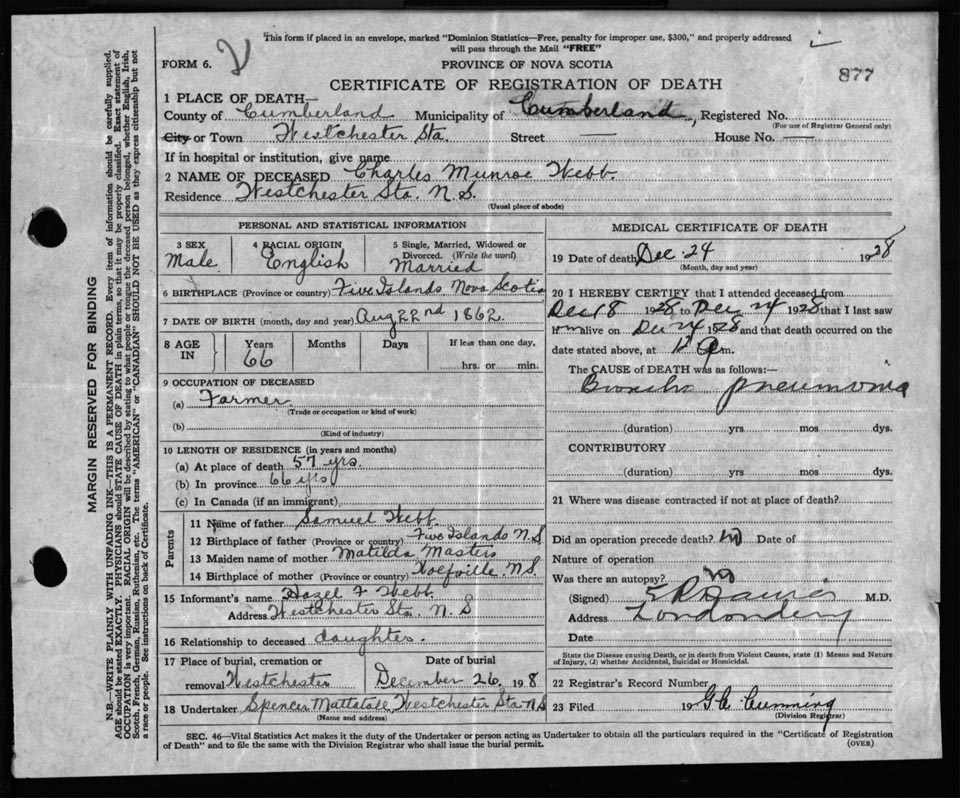 This form if placed in an envelope, marked "Dominion Statistics—Free, penalty for improper use, $300," and properly addressed
will pass through the Mail "FREE"
FORM 6.
PROVINCE OF NOVA SCOTIA
877
CERTIFICATE OF REGISTRATION OF DEATH
1 PLACE OF DEATH—
County of Cumberland Municipality of Cumberland, Registered No.
(For use of Registrar General only)
City or Town Westchester Sta. Street — House No. —
If in hospital or institution, give name
2 NAME OF DECEASED Charles Munroe Webb.
Residence Westchester Sta. N.S.
(Usual place of abode)
PERSONAL AND STATISTICAL INFORMATION
3 SEX 4 RACIAL ORIGIN 5 Single, Married, Widowed or
Divorced. (Write the word)
Male. English Married
6 BIRTHPLACE (Province or country) Five Islands Nova Scotia
7 DATE OF BIRTH (month, day and year) Aug 22nd 1862.
8 AGE IN Years Months Days If less than one day,
66 hrs. or min.
9 OCCUPATION OF DECEASED
(a) Farmer.
(Trade or occupation or kind of work)
(b)
(Kind of industry)
10 LENGTH OF RESIDENCE (in years and months)
(a) At place of death 57 yrs.
(b) In province 66 yrs
(c) In Canada (if an immigrant)
Parents
11 Name of father Samuel Webb.
12 Birthplace of father (Province or country) Five Islands N.S
13 Maiden name of mother Matilda Masters
14 Birthplace of mother (Province or country) Wolfville. N.S.
15 Informant's name Hazel F Webb.
Address Westchester Sta. N.S
16 Relationship to deceased daughter.
17 Place of burial, cremation or Date of burial
removal Westchester December 26, 19 8
18 Undertaker Spencer Mattatall Westchester Sta N.S
(Name and address)
MEDICAL CERTIFICATE OF DEATH
19 Date of death Dec. 24 1928
(Month, day and year)
20 I HEREBY CERTIFY that I attended deceased from
Dec 18 1928 to Dec 24 1928 that I last saw
h im alive on Dec 24 1928 and that death occurred on
date stated above, at m.
The CAUSE of DEATH was as follows:—
Broncho pneumonia
(duration) yrs mos dys.
CONTRIBUTORY
(duration) yrs mos dys.
21 Where was disease contracted if not at place of death?
Did an operation precede death? no Date of
Nature of operation
Was there an autopsy? no
(Signed) M.D.
Address Londonderry
Date
State the Disease causing Death, or in death from Violent Causes, state (1) Means and Nature
of Injury, (2) whether Accidental, Suicidal or Homicidal.
22 Registrar's Record Number
23 Filed 19 G.A. Cumming
(Division Registrar)
SEC. 46—Vital Statistics Act makes it the duty of the Undertaker or person acting as Undertaker to obtain all the particulars required in the "Certificate of Registration
of Death" and to file the same with the Division Registrar who shall issue the burial permit.
(OVER)
MARGIN RESERVED FOR BINDING
N.B.—WRITE PLAINLY WITH UNFADING INK—THIS IS A PERMANENT RECORD. Every item of information should be carefully supplied.
AGE should be stated EXACTLY. PHYSICIANS should STATE CAUSE OF DEATH in plain terms, so that it may be properly classified. Exact statement of
OCCUPATION is very important. RACIAL ORIGIN will be described by stating to what people or tongue the deceased person belonged, whether English, Irish,
Scotch, French, German, Russian, Ruthenian, etc. The terms "AMERICAN" or "CANADIAN" SHOULD NOT BE USED as they express citizenship but not
a race or people. See instructions on back of Certificate.